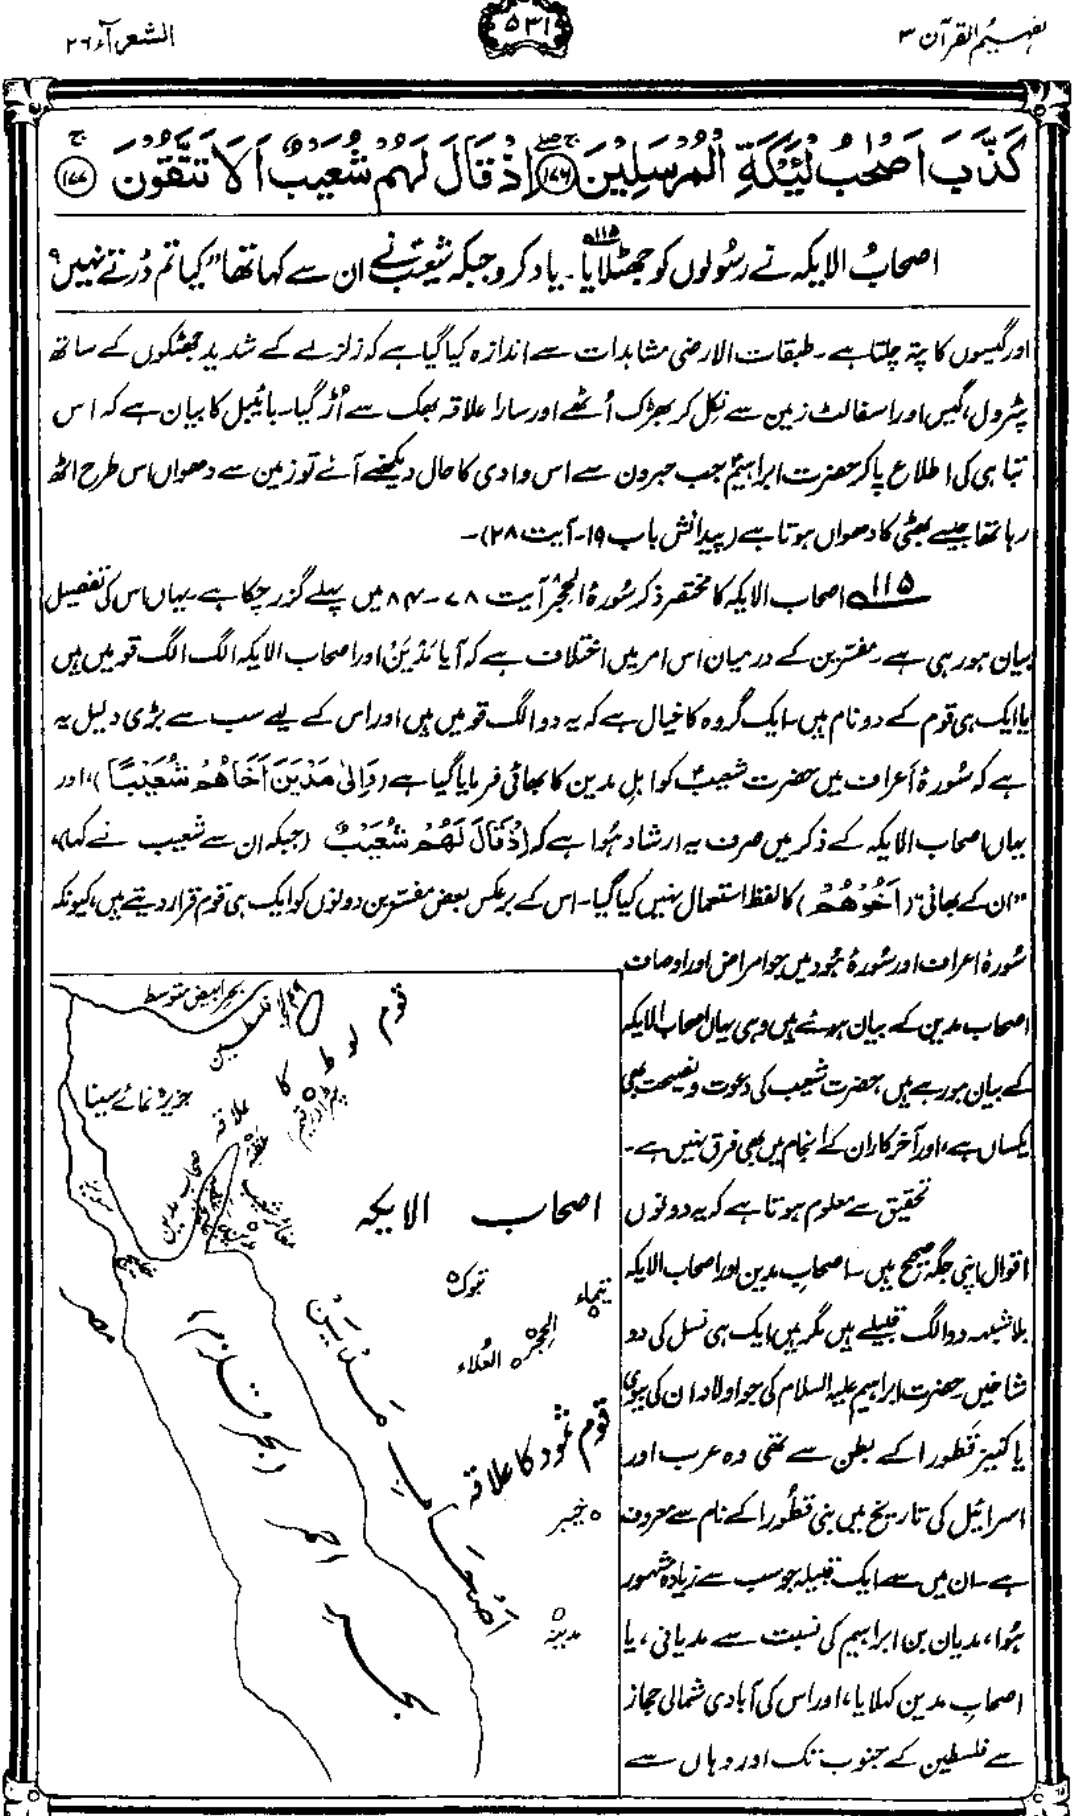 تفہیم القرآن ۳
۵۳۱
الشعرآء ۲۶
كَذَّبَ اَصْحٰبُ لْـَٔيْكَةِ الْمُرْسَلِيْنَ ﴿۱۷۶﴾ اِذْ قَالَ لَهُمْ شُعَيْبٌ اَلَا تَتَّقُوْنَ ﴿۱۷۷﴾
اصحابُ الایکہ نے رسُولوں کو جھٹلایا۱۱۵۔ یاد کرو جبکہ شعیبؑ نے ان سے کہا تھا ”کیا تم ڈرتے نہیں؟
اور گیسوں کا پتہ چلتا ہے۔ طبقات الارضی مشاہدات سے اندازہ کیا گیا ہے کہ زلزلے کے شدید جھٹکوں کے ساتھ
پٹرول، گیس اور اسفالٹ زمین سے نکل کر بھڑک اُٹھے اور سارا علاقہ بھک سے اُڑ گیا۔ بائیبل کا بیان ہے کہ اس
تباہی کی اطلاع پا کر حضرت ابراہیمؑ جب حبرون سے اس وادی کا حال دیکھنے آئے تو زمین سے دھواں اس طرح اٹھ
رہا تھا جیسے بھٹی کا دھواں ہوتا ہے (پیدائش باب ۱۹۔ آیت ۲۸)۔
۱۱۵ اصحاب الایکہ کا مختصر ذکر سُورۃ الحِجر آیت ۷۸-۸۴ میں پہلے گزر چکا ہے۔ یہاں اس کی تفصیل
بیان ہو رہی ہے۔ مفسّرین کے درمیان اس امر میں اختلاف ہے کہ آیا مَدْیَنْ اور اصحاب الایکہ الگ الگ قومیں ہیں
یا ایک ہی قوم کے دو نام ہیں۔ ایک گروہ کا خیال ہے کہ یہ دو الگ قومیں ہیں اور اس کے لیے سب سے بڑی دلیل یہ
ہے کہ سُورۂ اَعراف میں حضرت شعیبؑ کو اہلِ مدین کا بھائی فرمایا گیا ہے (وَاِلٰی مَدْیَنَ اَخَاهُمْ شُعَیْبًا)، اور
یہاں اصحاب الایکہ کے ذکر میں صرف یہ ارشاد ہُوا ہے کہ (اِذْ قَالَ لَهُمْ شُعَیْبٌ (جبکہ ان سے شعیب نے کہا)،
”ان کے بھائی“ (اَخُوْهُمْ) کا لفظ استعمال نہیں کیا گیا۔ اس کے برعکس بعض مفسّرین دونوں کو ایک ہی قوم قرار دیتے ہیں، کیونکہ
سُورۂ اعراف اور سُورۂ ہُود میں جو امراض اور اوصاف
اصحاب مدین کے بیان ہوئے ہیں وہی یہاں اصحاب الایکہ
کے بیان ہو رہے ہیں، حضرت شعیب کی دعوت و نصیحت بھی
یکساں ہے، اور آخرکار ان کے انجام میں بھی فرق نہیں ہے۔
تحقیق سے معلوم ہوتا ہے کہ یہ دونوں
اقوال اپنی جگہ صحیح ہیں۔ اصحابِ مدین اور اصحاب الایکہ
بلاشبہہ دو الگ قبیلے ہیں مگر ہیں ایک ہی نسل کی دو
شاخیں۔ حضرت ابراہیم علیہ السلام کی جو اولاد ان کی بیوی
یا کنیز قَطورا کے بطن سے تھی وہ عرب اور
اسرائیل کی تاریخ میں بنی قطُورا کے نام سے معروف
ہے۔ ان میں سے ایک قبیلہ جو سب سے زیادہ مشہور
ہُوا، مدیان بن ابراہیم کی نسبت سے مدیانی، یا
اصحابِ مدین کہلایا، اور اس کی آبادی شمالی حجاز
سے فلسطین کے جنوب تک اور وہاں سے
بحر ابیض متوسط
فلسطین
قوم لوط کا علاقہ
جزیرہ نمائے سینا
عقبہ
مغائر شعیب
اصحاب الایکہ
تبوک
تیماء
الحِجر
العُلاء
مصر
اَصْحَابِ مَدْیَن
قوم ثمُود کا علاقہ
خیبر
مدینہ
بحر احمر